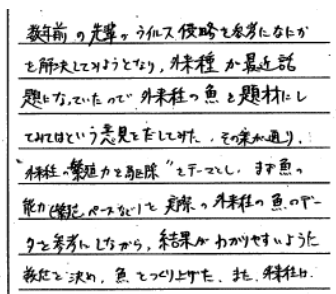 数年前の先輩のウイルス侵略を参考になにか
を解決してみようとなり、外来種が最近話
題になっていたので外来種の魚を題材にし
てみてはという意見をだしてみた。その案が通り、
"外来種の繁殖力と駆除"をテーマとし、まず魚の
能力(繁殖ペースなど)を実際の外来種の魚のデー
タを参考にしながら、結果がわかりやすいように
数値を決め、魚をつくり上げた。また、外来種は